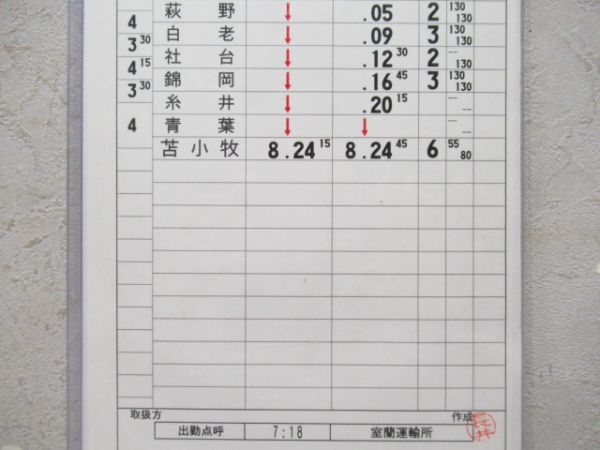 萩野 ↓ .05 2 130 130
4
白老 ↓ .09 3 130 130
3 30
社台 ↓ .12 30 2 -- 130
4 15
錦岡 ↓ .16 45 3 130 130
3 30
糸井 ↓ .20 15 -- --
4
青葉 ↓ ↓ -- --
苫小牧 8.24 15 8.24 45 6 55 80
取扱方 作成
出勤点呼 7:18 室蘭運輸所